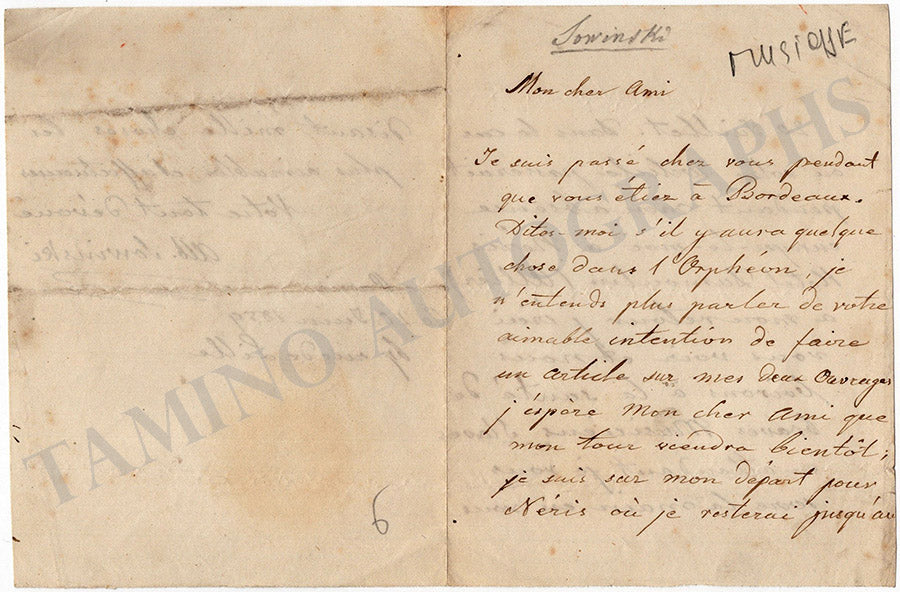 Sowinski
MUSIQUE
Mon cher Ami
Je suis passé chez vous pendant
que vous étiez à Bordeaux.
Dites-moi s'il y aura quelque
chose dans l'Orphéon, je
n'entends plus parler de votre
aimable intention de faire
un article sur mes deux Ouvrages
j'éspère Mon cher Ami que
mon tour viendra bientôt;
je suis sur mon départ pour
Néris où je resterai jusqu'au
6
TAMINO AUTOGRAPHS